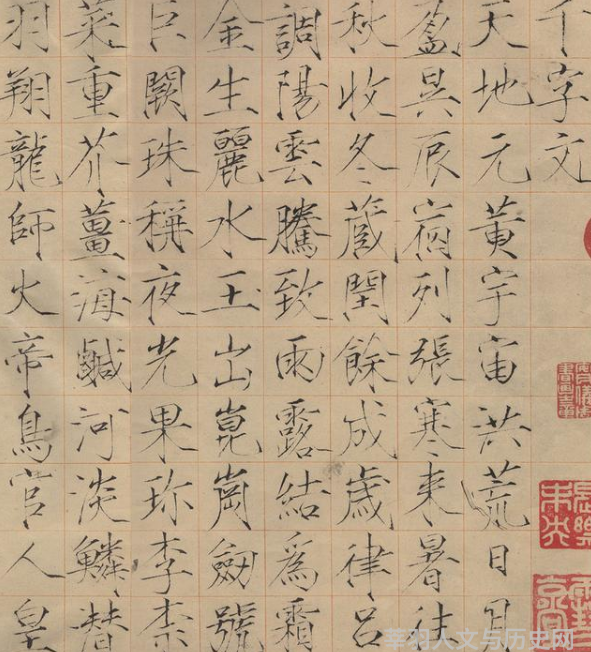 千字文
天地元黃宇宙洪荒日月
盈昃辰宿列張寒来暑往
秋收冬藏閏餘成歲律呂
調陽雲騰致雨露結爲霜
金生麗水玉出崑崗劒號
巨闕珠稱夜光果珍李柰
菜重芥薑海鹹河淡鱗潜
羽翔龍師火帝鳥官人皇
莘羽人文与历史网